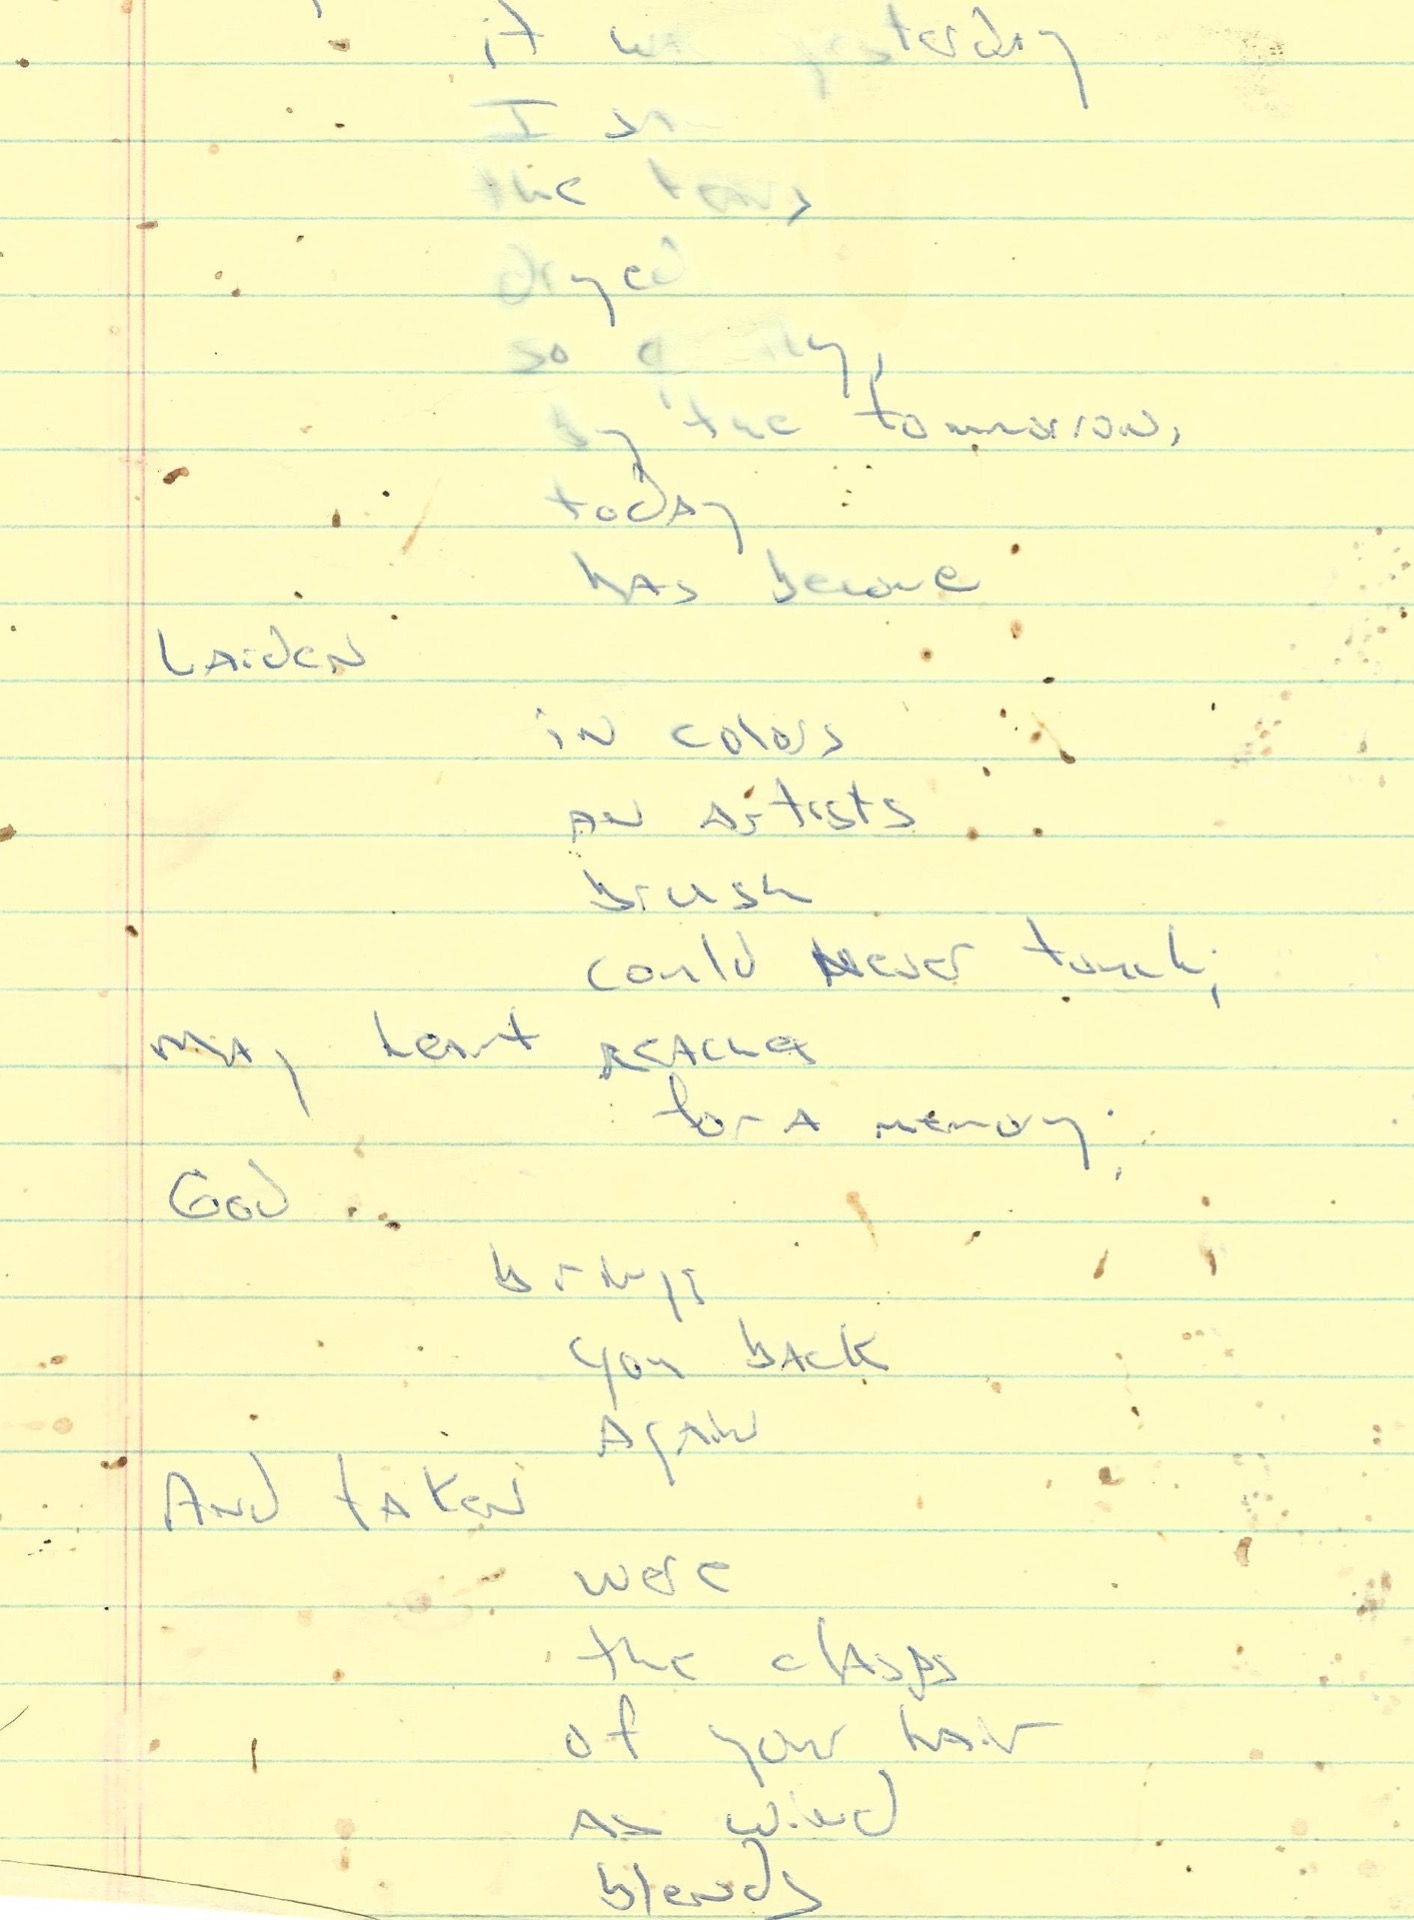 it was yesterday
I
the tears
dryed
so
by the tomorrow,
today
has become
Laiden
in colors
an artists
brush
could never touch;
may heart reaches
for a memory;
God
brings
you back
again
And taken
were
the clasps
of your hair
as wind
blends